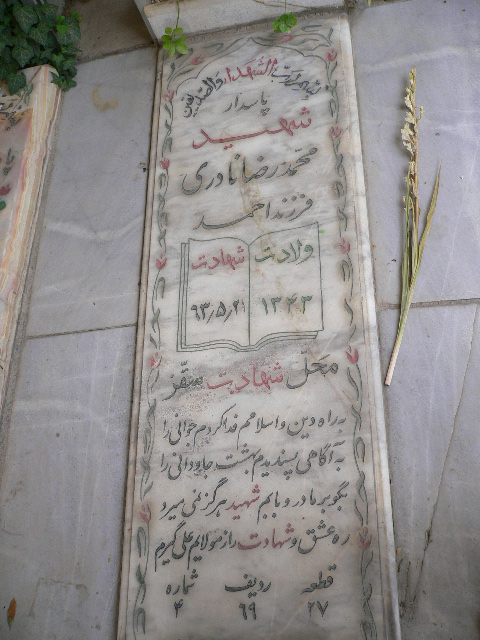 بسم رب الشهداء والصدیقین
پاسدار
شهید
محمدرضا نادری
فرزند احمد
ولادت شهادت
۱۳۴۳ ۹۳٫۵٫۲۱
محلّ شهادت سقّز
به راه دین و اسلامم فدا کردم جوانی را
به آگاهی پسندیدم بهشت جاودانی را
بگو بر مادر و بابم شهید هرگز نمی میرد
ره عشق و شهادت را ز مولایم علی گیرم
قطعه ردیف شماره
۲۷ ۶۹ ۴